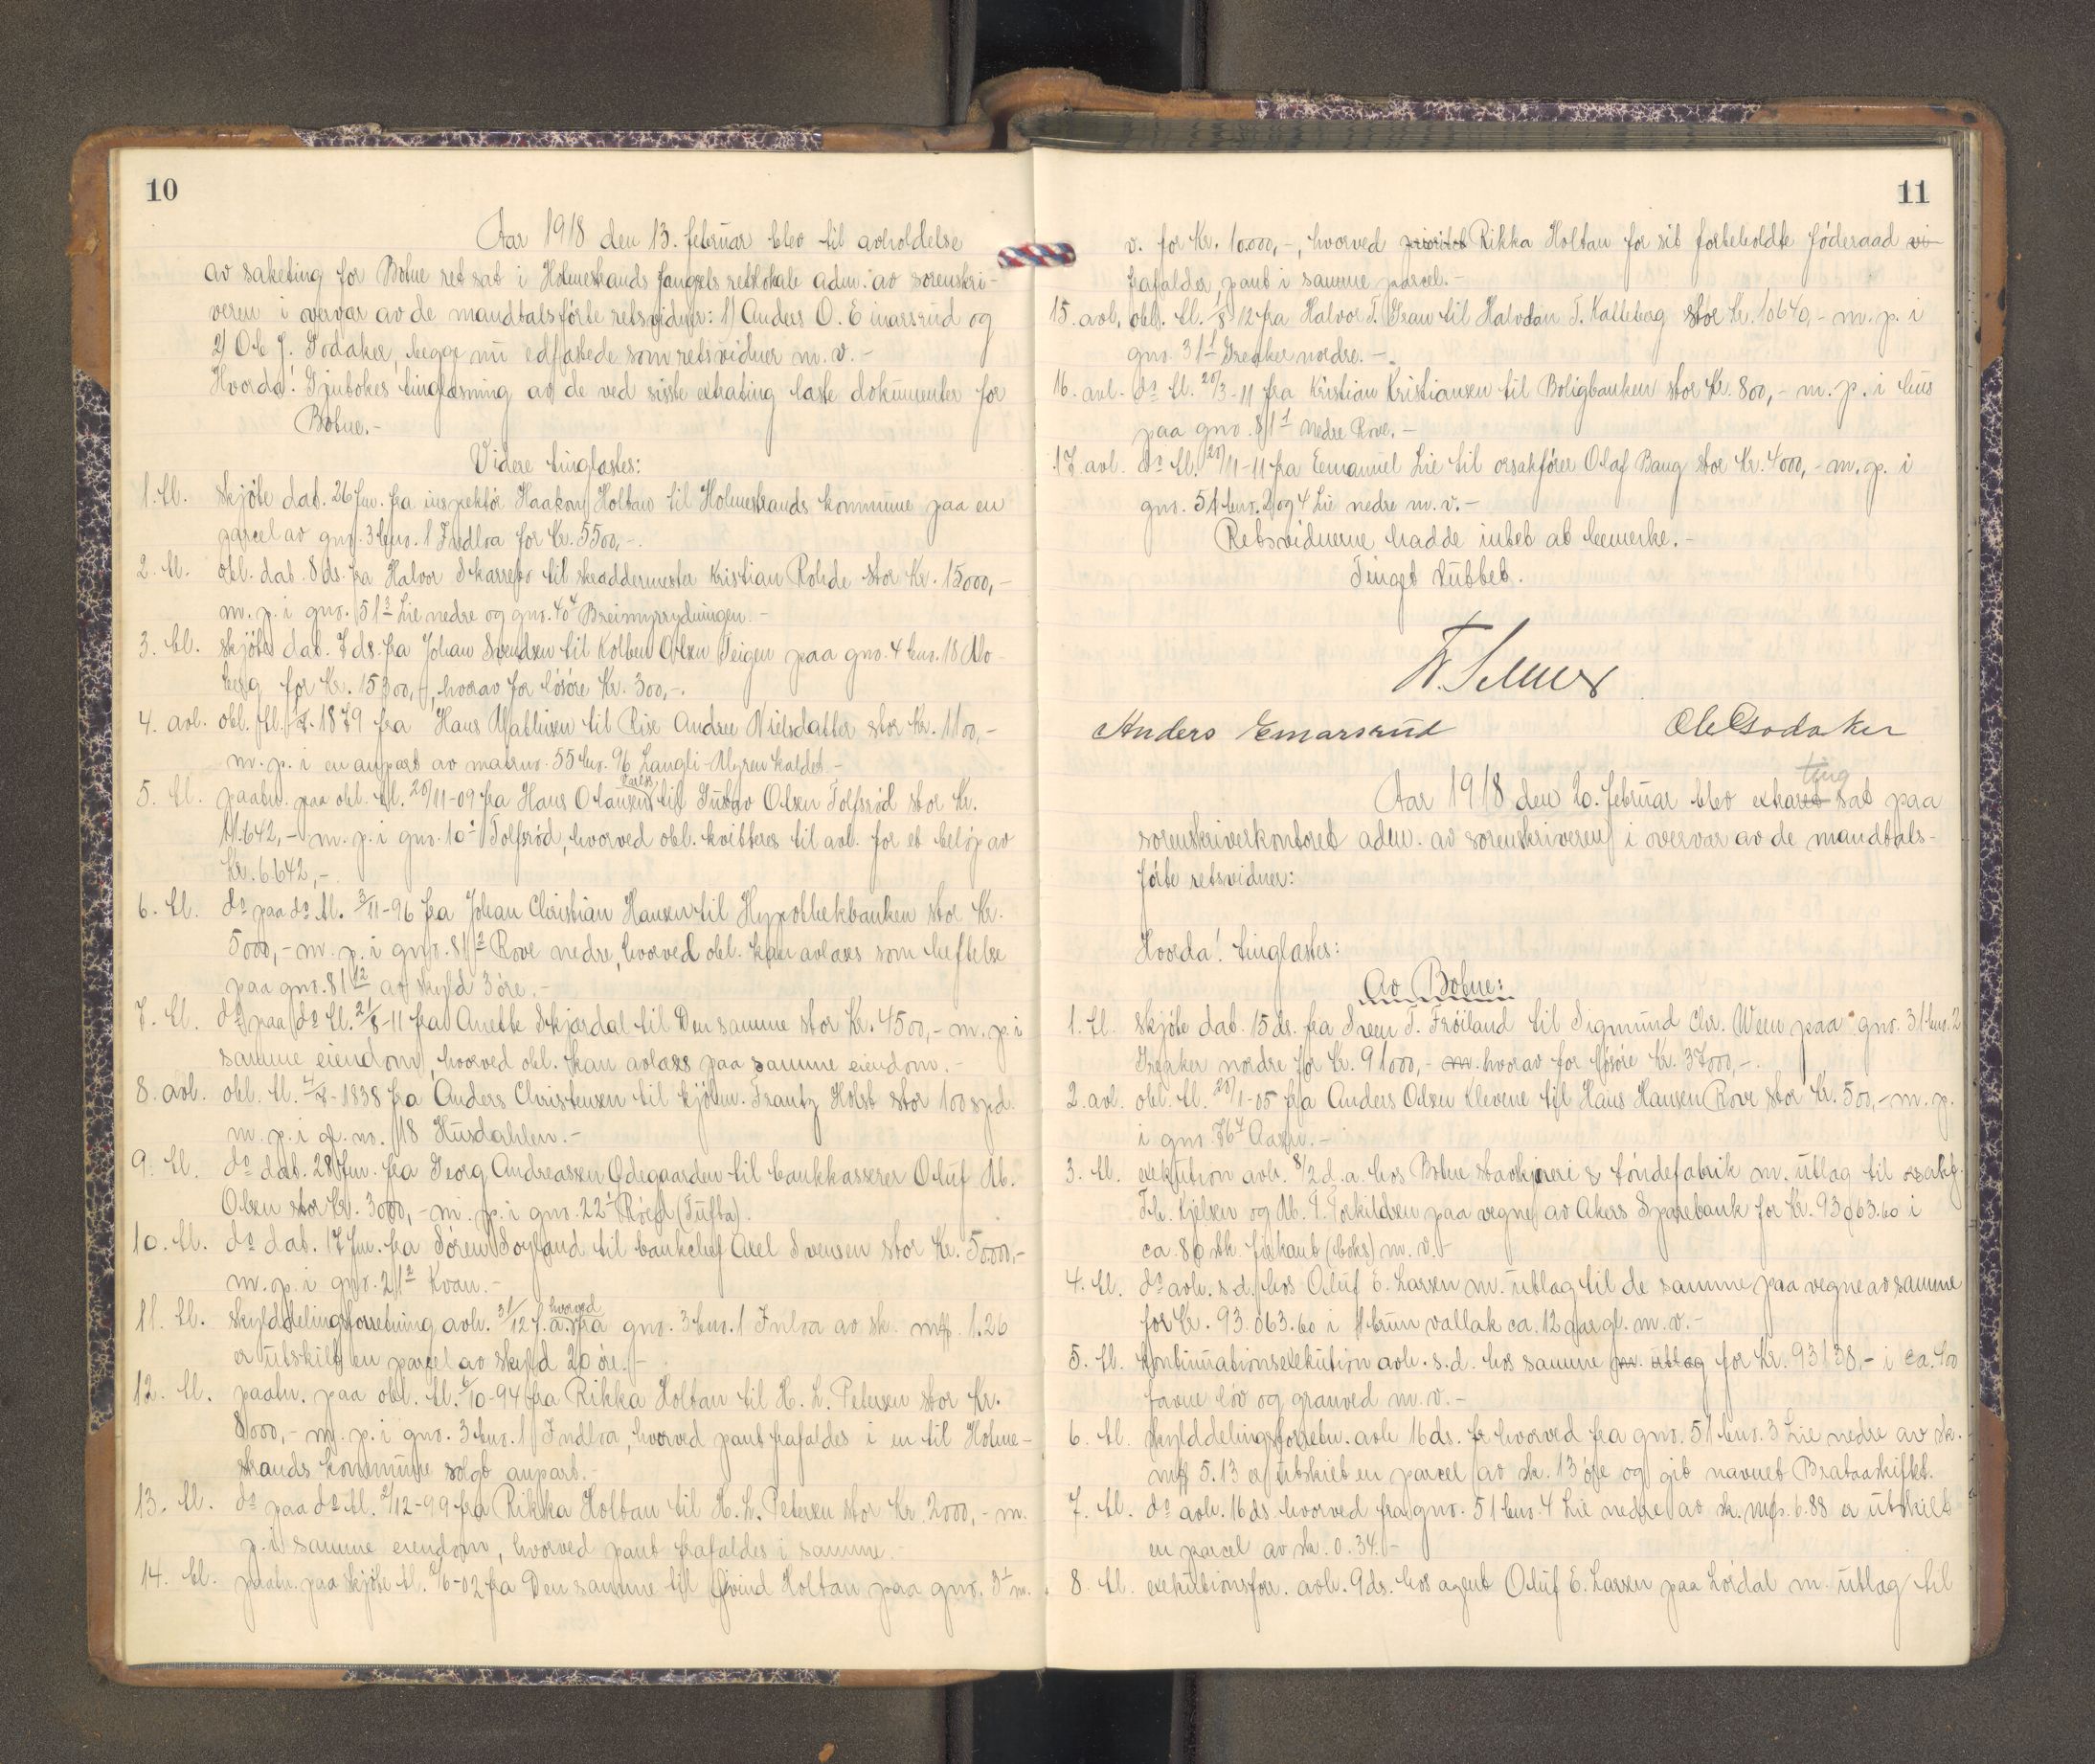 10
Aar 1918 den 13. februar blev til avholdelse
av saketing for Botne ret sat i Holmestrands fængsels retslokale adm. av sorenskri-
veren i overvær av de mandtalsførte retsvidner: 1) Anders O. Einarsrud og
2) Ole J. Godaker, begge nu edfæstede som retsvidner m. v. -
Hvorda! Gjentokes tinglæsning av de ved siste ekstrating læste dokumenter for
Botne. -
Videre tinglæstes:
1. tl. skjøte dat. 26 fm. fra inspektør Haakon Holtan til Holmestrands kommune paa en
parcel av gno. 3 bno. 1 Indlra for kr. 5500,-.
2. tl. obl. dat. 8 ds. fra Halvor Skarrebo til skræddermester Kristian Rohde stor kr. 15000,-
m. p. i gno. 51³ Lie nedre og gno. 40⁴ Breimyrrydningen. -
3. tl. skjøte dat. 7 ds. fra Johan Svendsen til Kolben Olsen Teigen paa gno. 4 bno. 18 Mo-
berg for kr. 15300,-, hvorav for løsøre kr. 300,-.
4. avl. obl. tl. 1879 fra Hans Mathisen til Lise Andrea Nielsdatter stor kr. 1100,-
m. p. i en anpart av matrno. 55 bno. 96 Langli-Myren kaldet. -
5. tl. paategn. paa obl. tl. 20/11-09 fra Hans Olausen til Gustav Olsen Tolfsrød stor kr.
11.642,- m. p. i gno. 10 Tolfsrød, hvorved obl. kvitteres til avl. for et beløp av
kr. 6642,-
6. tl. do paa do tl. 3/11-96 fra Johan Christian Hansen til Hypothekbanken stor kr.
5000,- m. p. i gno. 81² Rove nedre, hvorved obl. kan avlæses som heftelse
paa gno. 81¹² av skyld 3 øre. -
7. tl. do paa do tl. 21/8-11 fra Anette Skjærdal til Den samme stor kr. 4500,- m. p. i
samme eiendom, hvorved obl. kan avlæses paa samme eiendom. -
8. avl. obl. tl. 1838 fra Anders Christensen til kjøbm. Frantz Holst stor 100 spd.
m. p. i gl. no. 118 Husdahlen. -
9. tl. do dat. 28 fm. fra Georg Andreassen Ødegaarden til bankkasserer Oluf M.
Olsen stor kr. 3000,- m. p. i gno. 22¹ Røed (Tufta).
10. tl. do dat. 17 fm. fra Søren Søyland til bankchef Axel Svensen stor kr. 50000,-
m. p. i gno. 21² Kvan. -
11. tl. skylddelingsforretning avh. 31/12 f. a. hvorved fra gno. 3 bno. 1 Inlra av sk. mrk 1.26
er utskilt en parcel av skyld 20 øre. -
12. tl. paategn. paa obl. tl. 6/10-94 fra Rikka Holtan til H. L. Petersen stor kr.
8000,- m. p. i gno. 3 bno. 1 Indlra, hvorved pant frafaldes i en til Holme-
strands kommune solgt anpart. -
13. tl. do paa do tl. 2/12-99 fra Rikka Holtan til H. L. Petersen stor kr. 2000,- m.
p. i samme eiendom, hvorved pant frafaldes i samme. -
14. tl. paategn. paa skjøte tl. 2/6-02 fra Den samme til Eivind Holtan paa gno. 3¹ m.
11
v. for kr. 10.000,-, hvorved prioritet Rikka Holtan for sit forbeholdte føderaad vi-
frafalder pant i samme parcel. -
15. avl. obl. tl. 1/8 12 fra Halvor T. Gran til Halvdan T. Kalleberg stor kr. 10640,- m. p. i
gno. 31¹ Greaker nordre. -
16. avl. do tl. 20/3-11 fra Kristian Kristiansen til Boligbanken stor kr. 800,- m. p. i hus
paa gno. 81¹ nedre Rove. -
17. avl. do tl. 20/11-11 fra Emanuel Lie til orsakfører Olaf Baug stor kr. 4000,- m. p. i
gno. 51 bno. 2 og 4 Lie nedre m. v. -
Retsvidnerne hadde intet at bemerke. -
Tinget sluttet.
Anders Einarsrud Ole Godaker
Aar 1918 den 20. februar blev extraret ting sat paa
sorenskriverkontoret adm. av sorenskriveren i overvær av de mandtals-
førte retsvidner:
Hvorda! tinglæstes:
Av Botne:
1. tl. skjøte dat. 15 ds. fra Sven T. Frøiland til Sigmund Chr. Ween paa gno. 31 bno. 2
Greaker nordre for kr. 91000,- m. hvorav for løsøre kr. 37000,-.
2. avl. obl. tl. 20/1-05 fra Anders Olsen Klevene til Hans Hansen Rove stor kr. 500,- m. p.
i gno. 76⁴ Aasen. -
3. tl. exekution avh. 8/2 d. a. hos Botne stavskjæreri & tøndefabrik m. utlæg til orsakf.
Th. Kjelsen og M. T. Torkildsen paa vegne av Akers Sparebank for kr. 93063.60 i
ca. 80 stk. firkant (boks) m. v. -
4. tl. do avh. s. d. hos Oluf E. Larsen m. utlæg til de samme paa vegne av samme
for kr. 93.063.60 i 1 brun vallak ca. 12 aar gl. m. v. -
5. tl. kontinuationsexekution avh. s. d. hos samme m. utlæg for kr. 93138,- i ca. 400
favne løv og granved m. v. -
6. tl. skylddelingsforretn. avh 16 ds. fr hvorved fra gno. 51 bno. 3 Lie nedre av sk.
mrk 5.13 er utskilt en parcel av sk. 13 øre og git navnet Brataaskiftet.
7. tl. do avh. 16 ds. hvorved fra gno. 51 bno. 4 Lie nedre av sk. mrk. 6.88 er utskilt
en parcel av sk. 0.34. -
8. tl. exekutionsforr. avh. 9 ds. hos agent Oluf E. Larsen paa Lørdal m. utlæg til